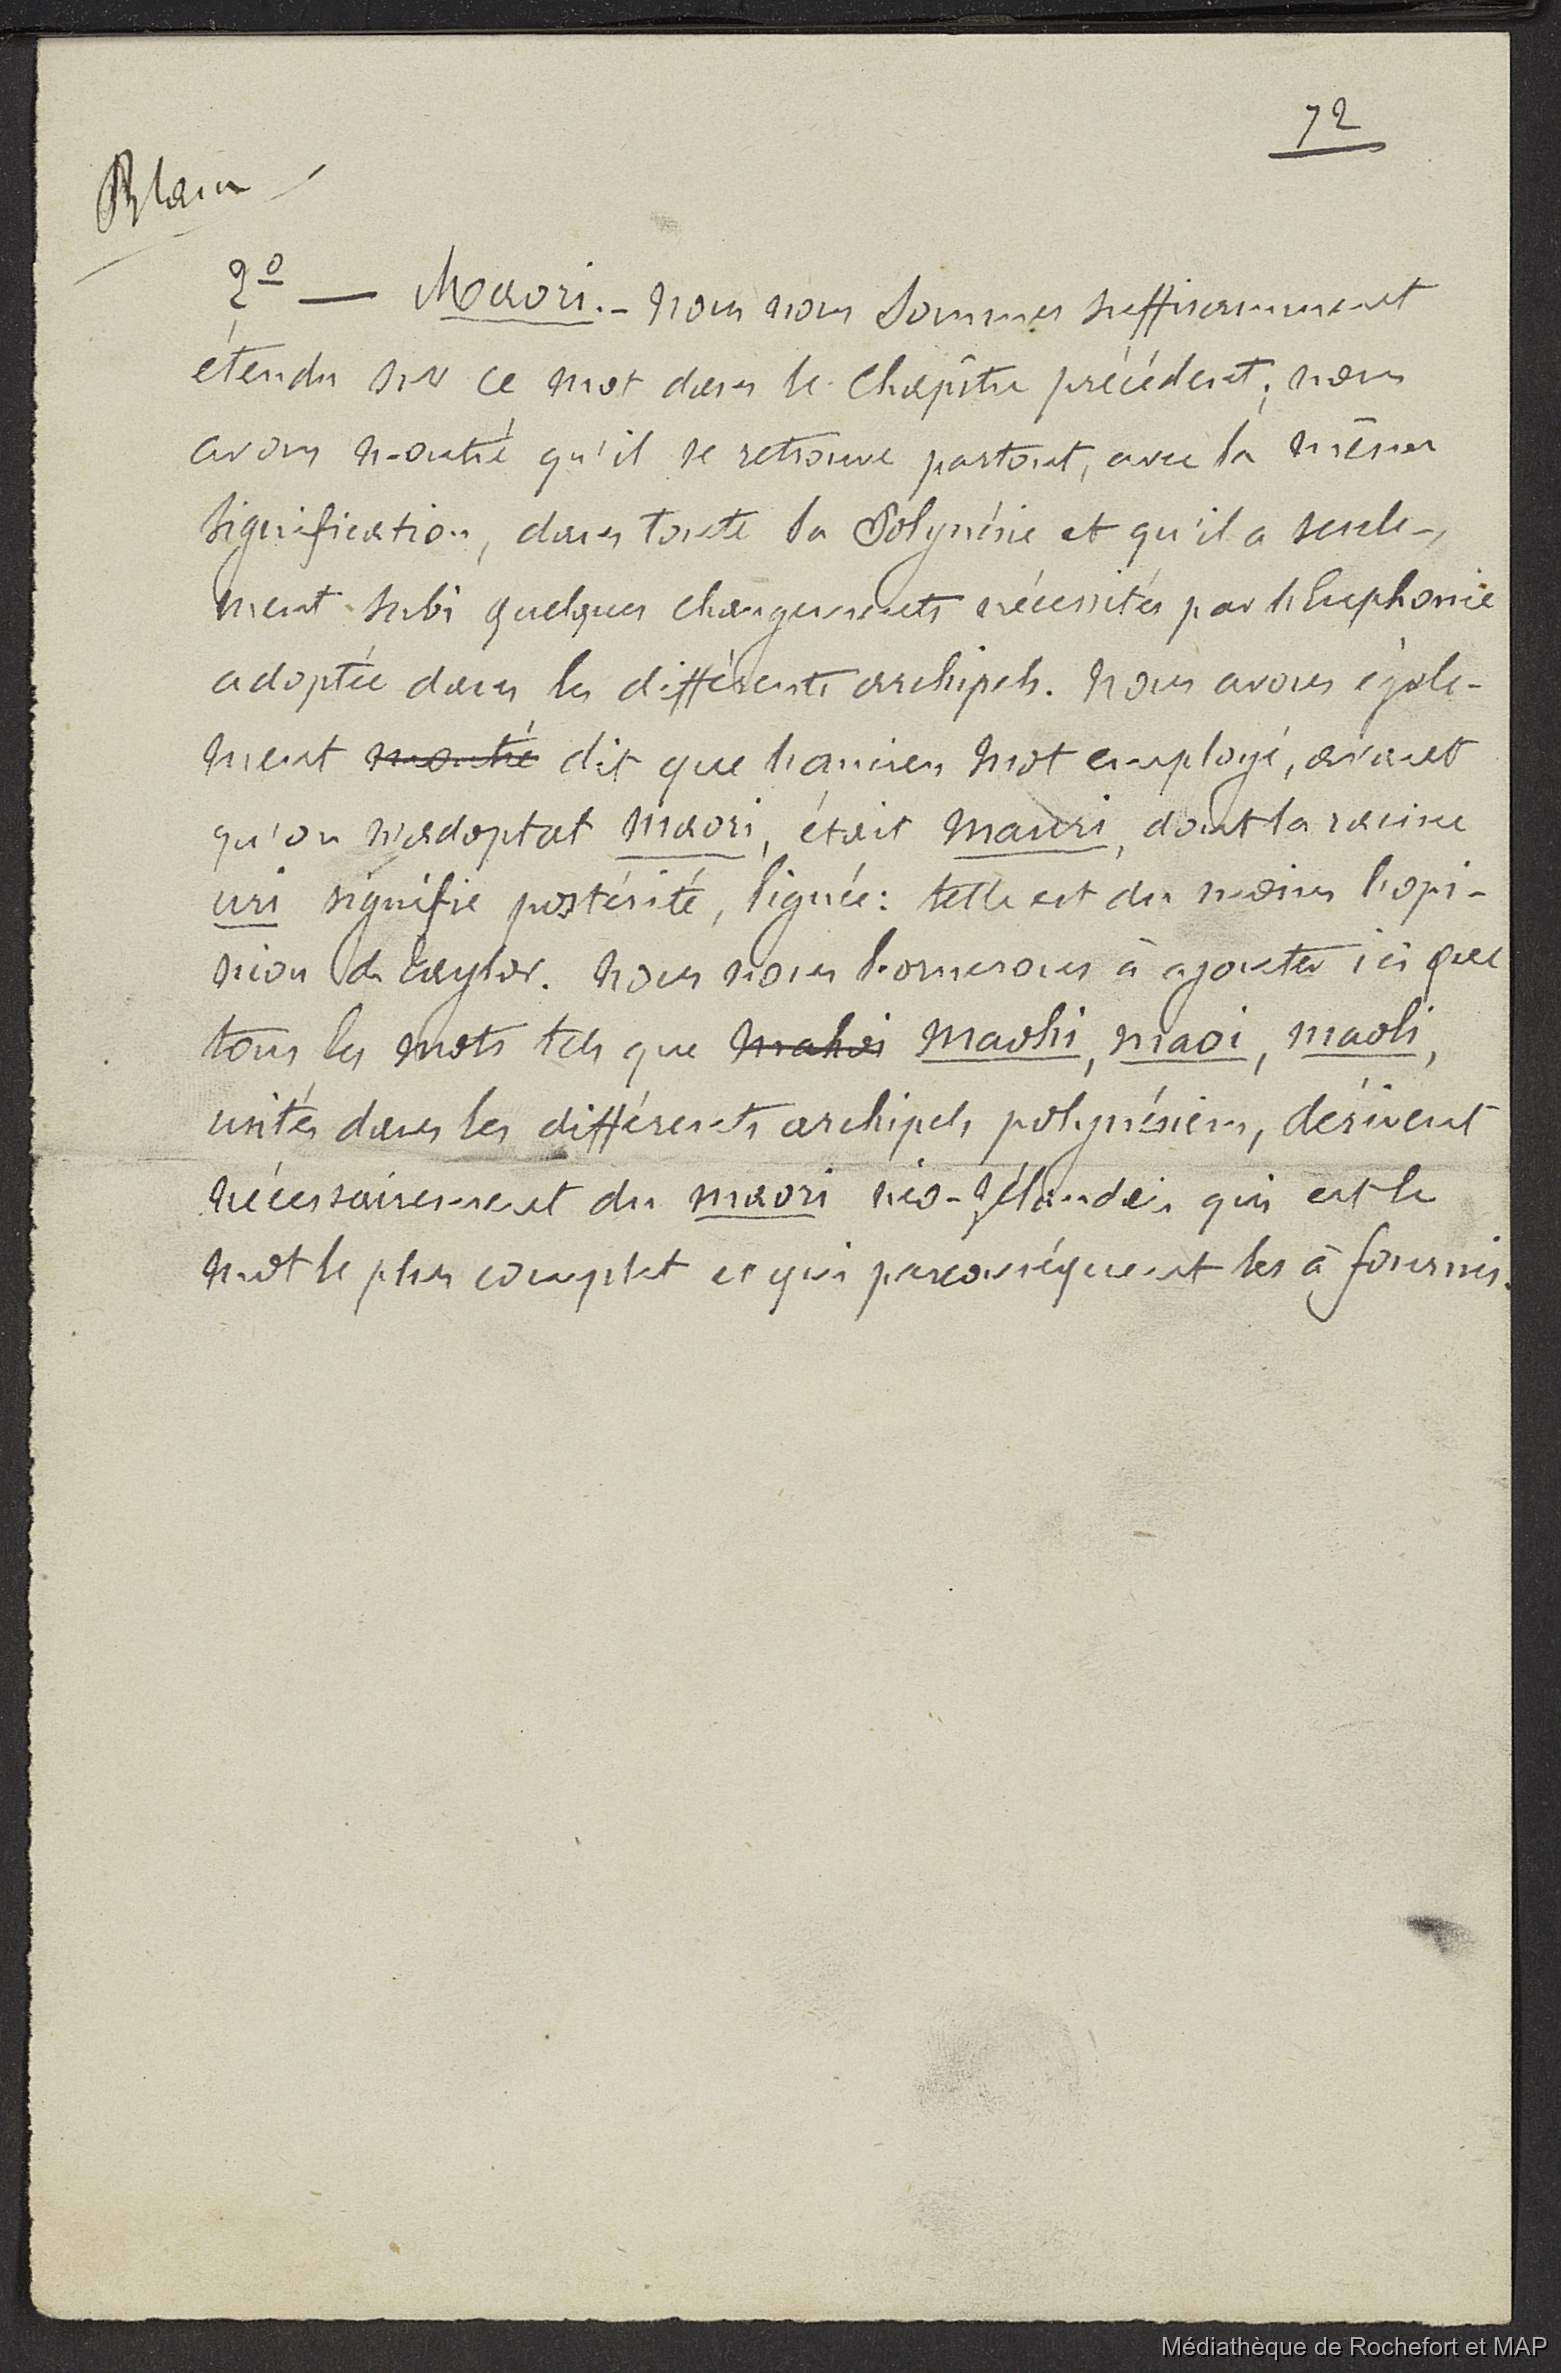 72
Blanc
2º — Maori. - Nous nous sommes suffisamment
étendu sur ce mot dans le chapître précédent; nous
avons montré qu'il se retrouve partout, avec la même
signification, dans toute la Polynésie et qu'il a seule-
ment subi quelques changements nécessités par l'Euphonie
adoptée dans les différents archipels. Nous avons égale-
ment montré dit que l'ancien mot employé, avant
qu'on n'adoptat maori, était mauri, dont la racine
uri signifie postérité, lignée: telle est du moins l'opi-
nion de Taylor. Nous nous bornerons à ajouter ici que
tous les mots tels que mahoi maohi, maoi, maoli,
usités dans les différents archipels polynésiens, dérivent
nécessairement du maori néo-zélandais qui est le
mot le plus complet et qui par conséquent les à fournis.
Médiathèque de Rochefort et MAP